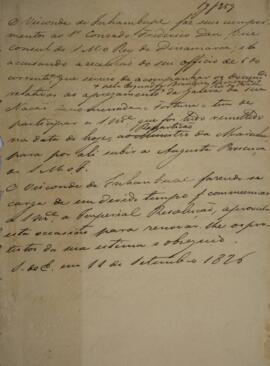 O Visconde de Inhambupe faz seus cumpri
mentos ao Sr. Conrado Frederico
consul de S. M. o Rey de Dinamarca; e
accusando a recebido do seu officio de 6 do
corrente, que servio de acompanhar os
relativos ao aprezamento da Galera da sua
Nação denominada = Fortuna = tem de
participar a que foi tudo remettido
Repartição
na data de hoje, ao da Marinha
para por ali subir a Augusta Presença
de S. M. I.
O Visconde de Inhambupe fazendo se
cargo de em devido tempo communicar
a Imperial Resolução, aproveita
esta occasião para renovar lhe os pro
testos da sua estima e obsequio.
em 11 de Setembro 1826